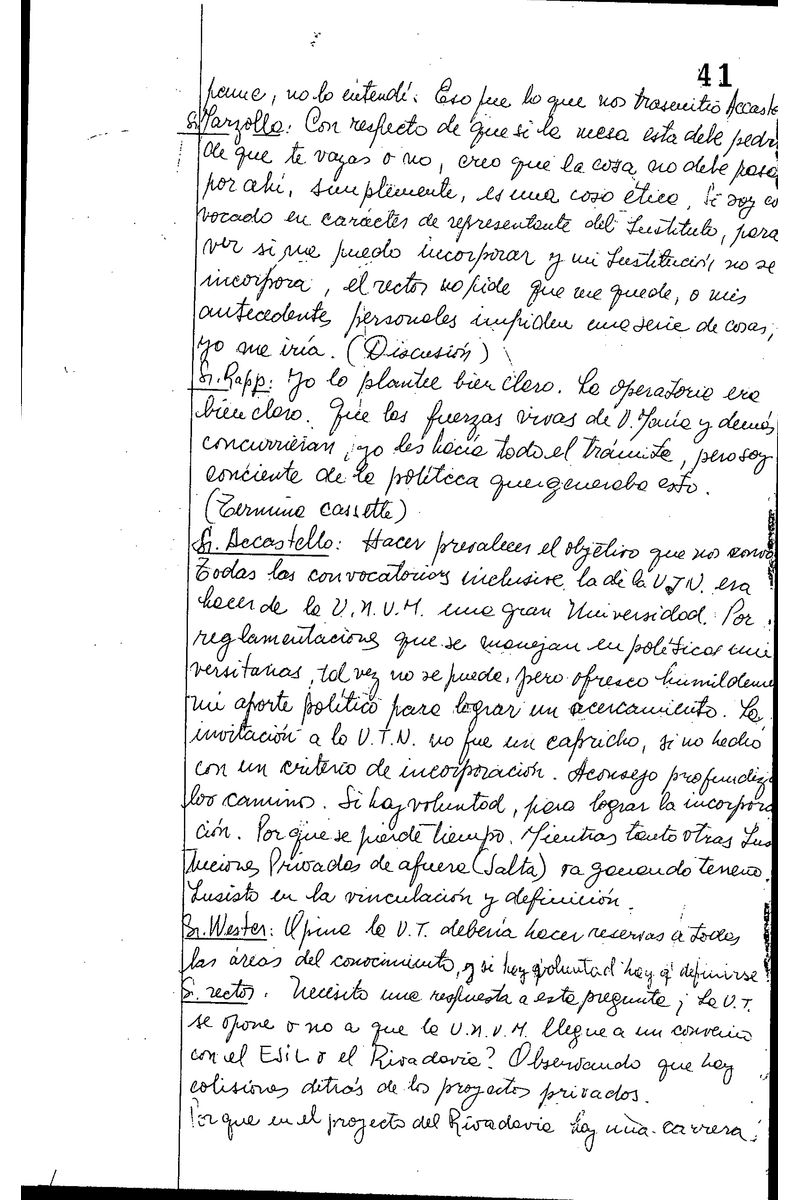 41
pame, no lo entendí. Eso fue lo que nos trasmitió Accaste
Sr. Marzolla: Con respecto de que si la mesa esta debe pedir
de que te vayas o no, creo que la cosa no debe pasa
por ahí, simplemente, es una cosa ética. Si soy co
vocado en carácter de representante del Instituto, para
ver si me puedo incorporar y mi Institución no se
incorpora, el rector no pide que me quede, o mis
antecedentes personales impiden una serie de cosas,
yo me iría. (Discusión)
Sr. Rapp: Yo lo plantee bien claro. La operatoria era
bien claro. Que las fuerzas vivas de V. María y demás
concurrieran, yo les hacía todo el trámite, pero soy
conciente de la política que generaba esto.
(Termina cassette)
Sr. Accastello: Hacer prevalecer el objetivo que nos convo
Todas las convocatorias inclusive la de la U.T.N. era
hacer de la U.N.V.M. una gran Universidad. Por
reglamentaciones que se manejan en políticas uni
versitarias, tal vez no se pueda, pero ofresco humildeme
mi aporte político para lograr un acercamiento. La
invitación a la U.T.N. no fue un capricho, si no hecho
con un criterio de incorporación. Aconsejo profundiza
los caminos. Si hay voluntad, para lograr la incorpora
ción. Por que se pierde tiempo. Mientras tanto otras Ins
tuciones Privadas de afuera (Salta) va ganando terreno.
Insisto en la vinculación y definición.
Sr. Wester: Opina la U.T. debería hacer reservas a todas
las áreas del conocimiento, y si hay voluntad hay q' definirse
S. rector. Necesito una respuesta a esta pregunta; La U.T.
se opone o no a que la U.N.V.M. llegue a un convenio
con el ESIL o el Rivadavia? Observando que hay
colisiones detrás de los proyectos privados.
Por que en el proyecto del Rivadavia hay una carrera